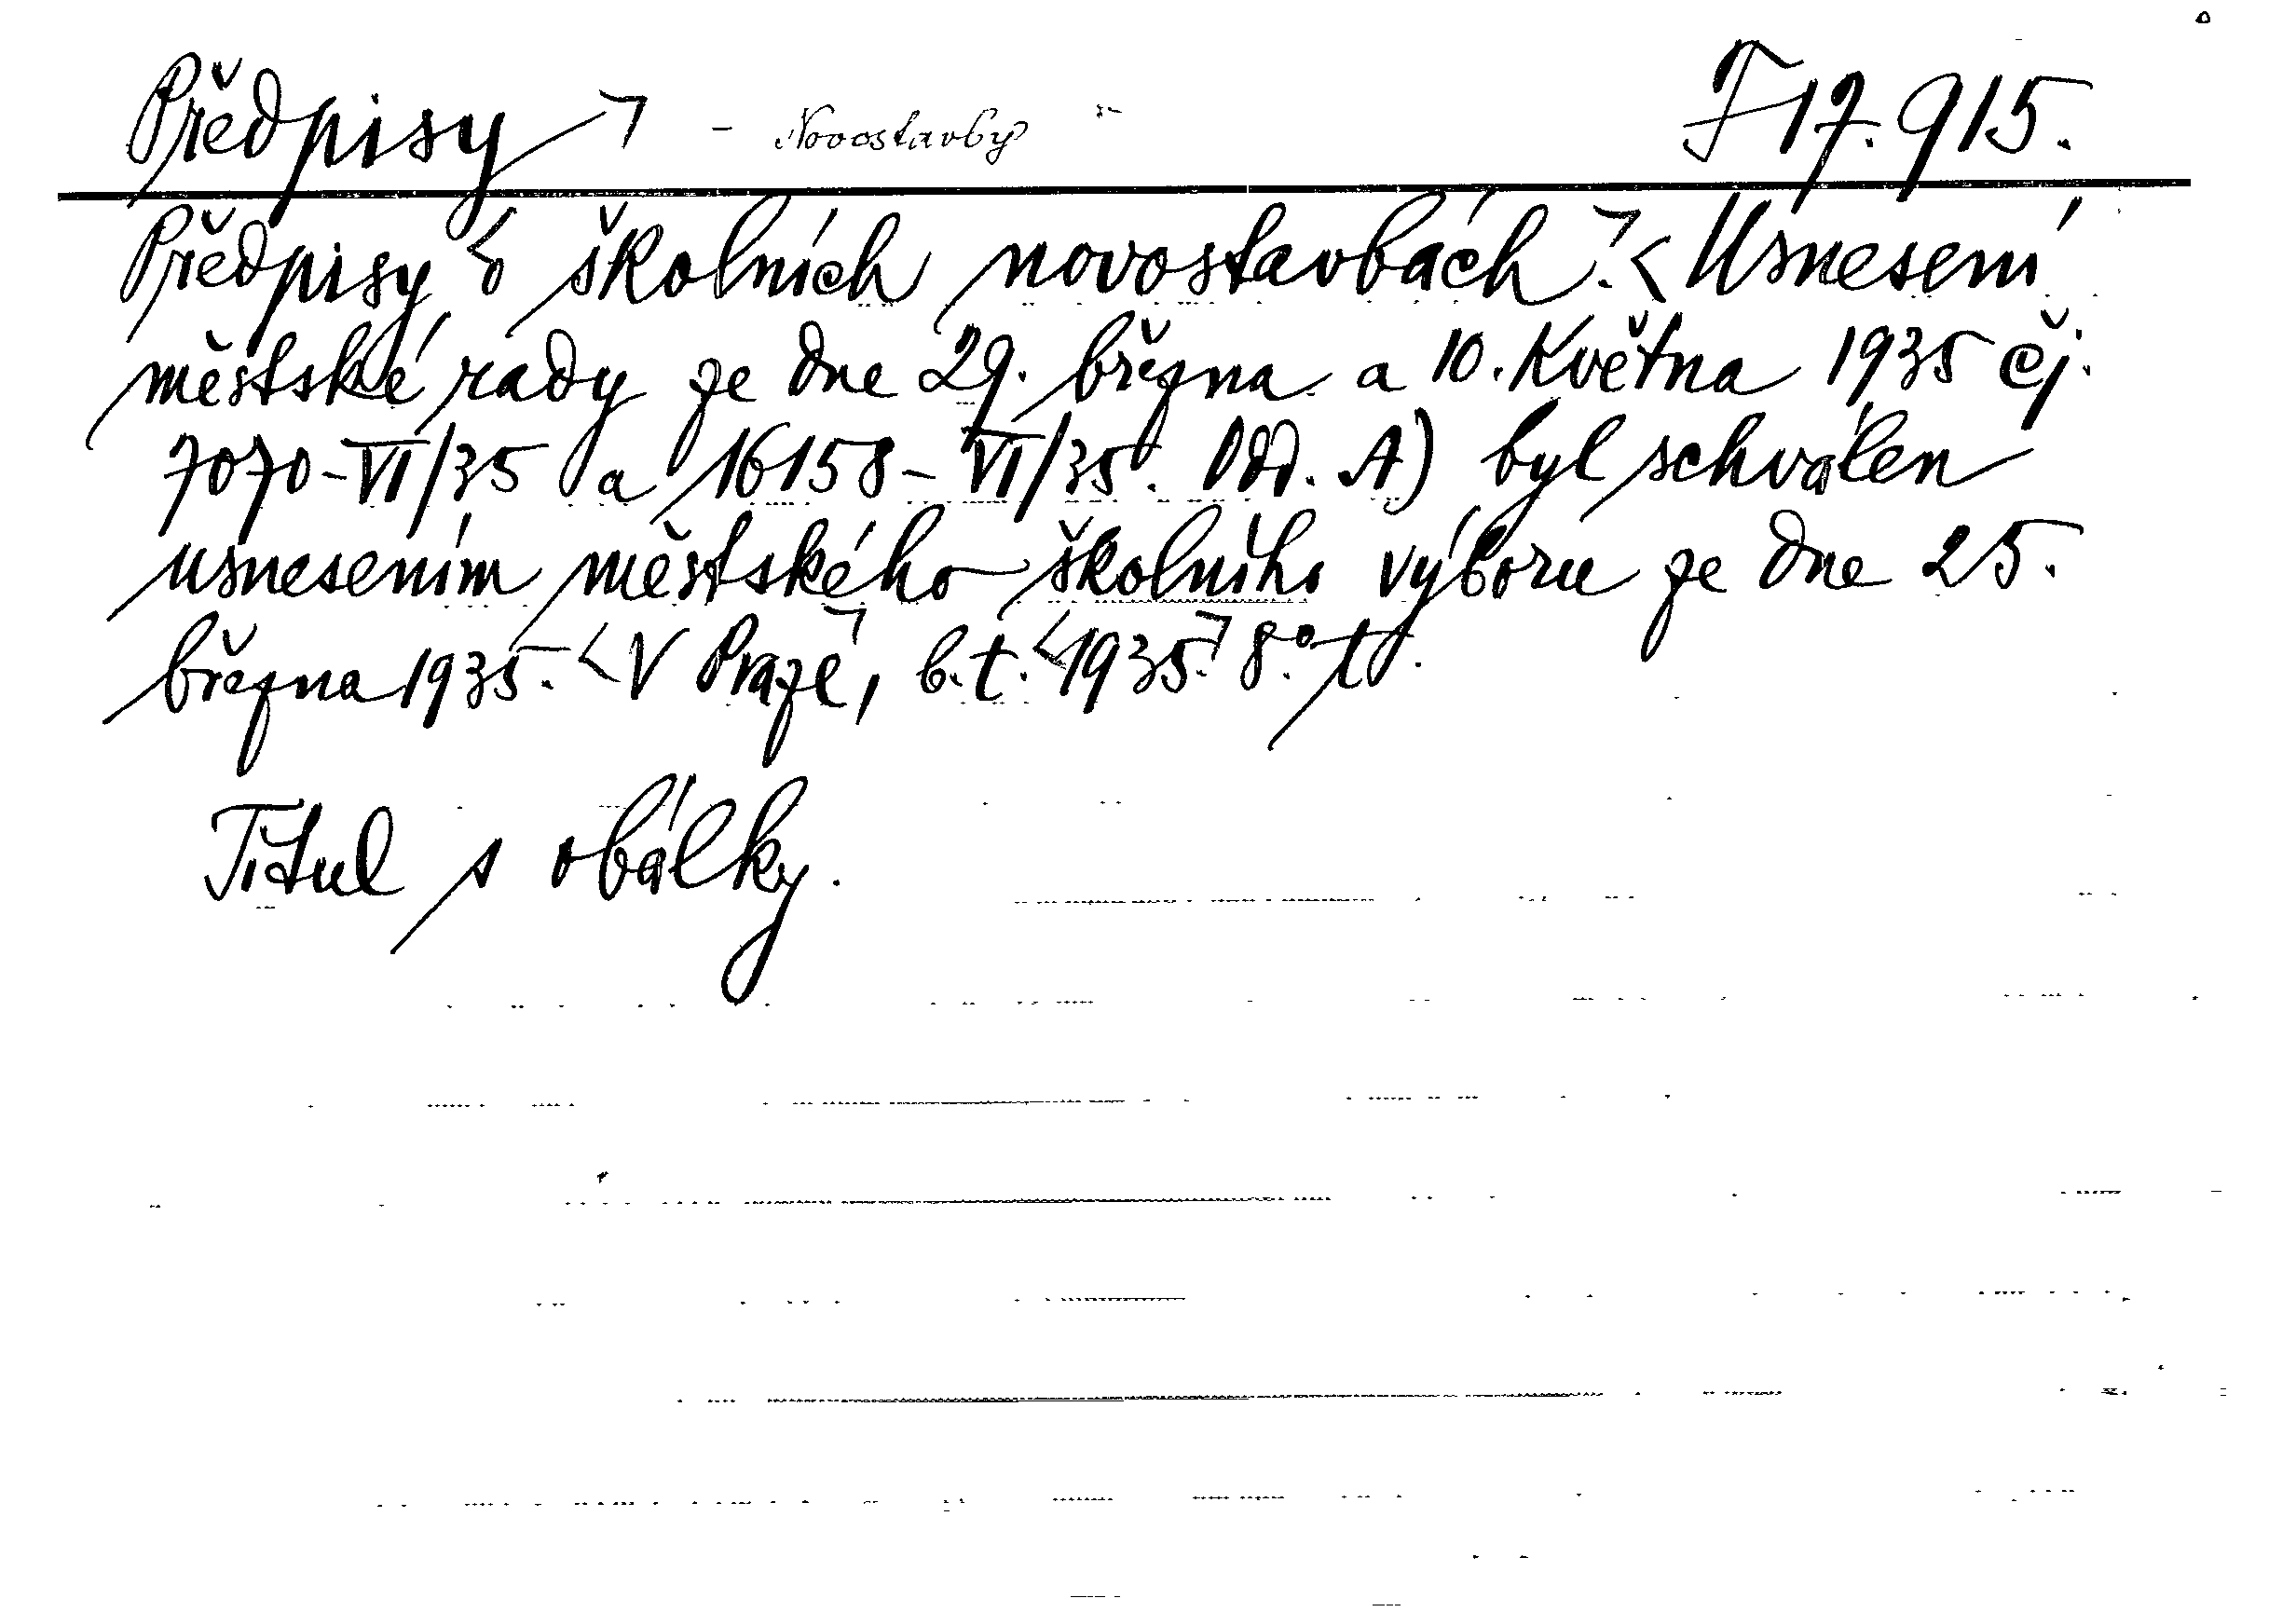 Předpisy ¬ - Novostavby
F 17.915.
Předpisy < o školních novostavbách. ¬ < Usnesení
městské rady ze dne 29. března a 10. května 1935 čj.
7070-VI/35 a 16158-VI/35. Odd. A) byl schválen
usnesením městského školního výboru ze dne 25.
března 1935. < V Praze ¬, b.t. < 1935. ¬ 8°.
Titul s obálky.